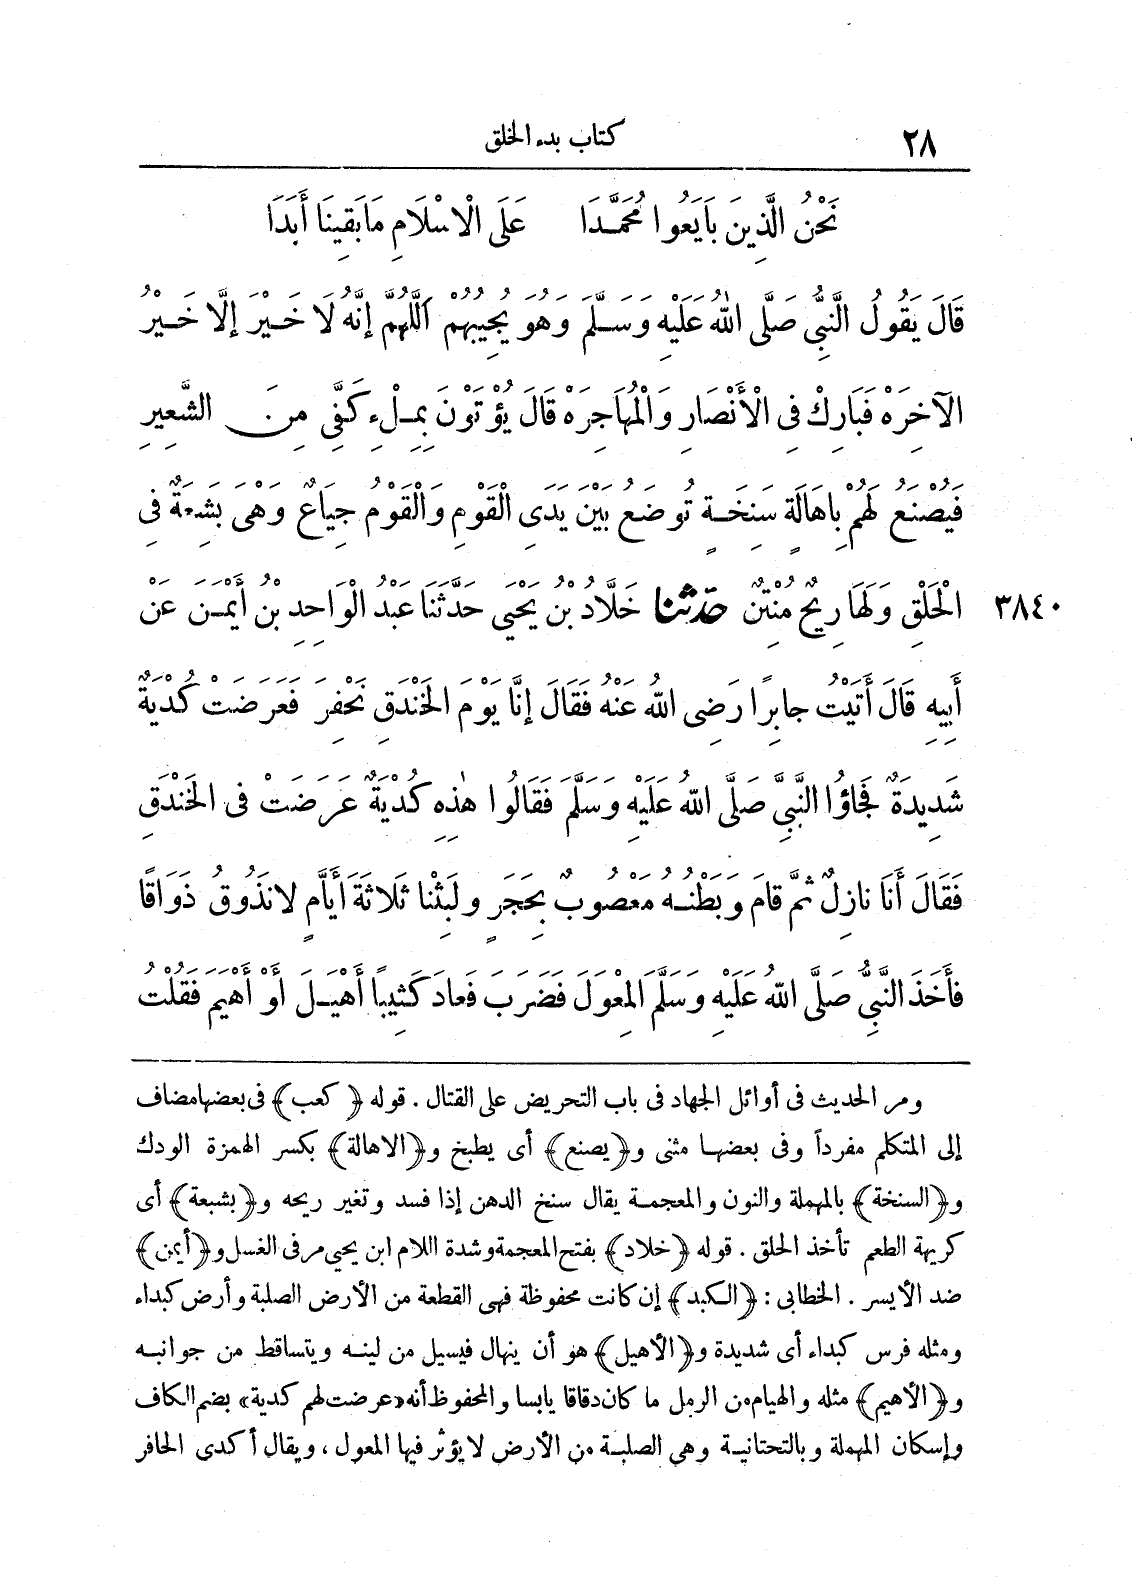 ٢٨ كتاب بدء الخلق
نَحْنُ الَّذِينَ بَايَعُوا مُحَمَّدَا عَلَى الْاِسْلَامِ مَا بَقِينَا أَبَدَا
قَالَ يَقُولُ النَّبِيُّ صَلَّى اللهُ عَلَيْهِ وَسَلَّمَ وَهُوَ يُجِيبُهُمْ اَللّٰهُمَّ إِنَّهُ لَا خَيْرَ إِلَّا خَيْرُ
الآخِرَهْ فَبَارِكْ فِى الْأَنْصَارِ وَالْمُهَاجِرَهْ قَالَ يُؤْتَوْنَ بِمِلْءِ كَفَّى مِنَ الشَّعِيرِ
فَيُصْنَعُ لَهُمْ بِاهَالَةٍ سَنِخَةٍ تُوضَعُ بَيْنَ يَدَىِ الْقَوْمِ وَالْقَوْمُ جِيَاعٌ وَهْىَ بَشِعَةٌ فِى
٣٨٤٠ الْحَلْقِ وَلَهَا رِيحٌ مُنْتِنٌ حَدَّثَنَا خَلَّادُ بْنُ يَحْيَ حَدَّثَنَا عَبْدُ الْوَاحِدِ بْنُ أَيْمَنَ عَنْ
أَبِيهِ قَالَ أَتَيْتُ جابِرًا رَضِىَ اللهُ عَنْهُ فَقَالَ إِنَّا يَوْمَ الخَنْدَقِ نَحْفِرُ فَعَرَضَتْ كُدْيَةٌ
شَدِيدَةٌ فَجَاؤُا النَّبِيَّ صَلَّى اللهُ عَلَيْهِ وَسَلَّمَ فَقَالُوا هٰذِهِ كُدْيَةٌ عَرَضَتْ فِى الخَنْدَقِ
فَقَالَ أَنَا نازِلٌ ثُمَّ قامَ وَبَطْنُهُ مَعْصُوبٌ بِحَجَرٍ وَلَبِثْنَا ثَلاثَةَ أَيَّامٍ لانَذُوقُ ذَوَاقًا
فَأَخَذَ النَّبِيُّ صَلَّى اللهُ عَلَيْهِ وَسَلَّمَ الْمِعْوَلَ فَضَرَبَ فَعادَ كَثِيبًا أَهْيَلَ أَوْ أَهْيَمَ فَقُلْتُ
ومر الحديث فى أوائل الجهاد فى باب التحريض على القتال . قوله ﴿ كعب﴾ فى بعضها مضاف
إلى المتكلم مفرداً وفى بعضها مثنى و﴿يصنع﴾ أى يطبخ و﴿الاهالة﴾ بكسر الهمزة الودك
و﴿السنخة﴾ بالمهملة والنون والمعجمة يقال سنخ الدهن إذا فسد وتغير ريحه و﴿بشعة﴾ أى
كريهة الطعم تأخذ الحلق . قوله ﴿خلاد﴾ بفتح المعجمة وشدة اللام ابن يحيى مر فى الغسل و﴿أيمن﴾
ضد الأيسر . الخطابى : ﴿الكبد﴾ إن كانت محفوظة فهى القطعة من الأرض الصلبة وأرض كبداء
ومثله فرس كبداء أى شديدة و﴿الأهيل﴾ هو أن ينهال فيسيل من لينه ويتساقط من جوانبه
و﴿الأهيم﴾ مثله والهيام من الرمل ما كان دقاقا يابسا والمحفوظ أنه «عرضت لهم كدية» بضم الكاف
وإسكان المهملة وبالتحتانية وهى الصلبة من الأرض لا يؤثر فيها المعول ، ويقال أكدى الحافر